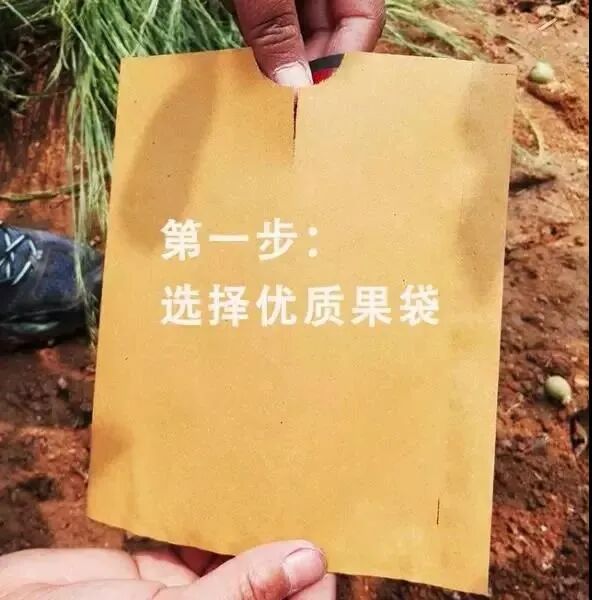 第一步：
选择优质果袋